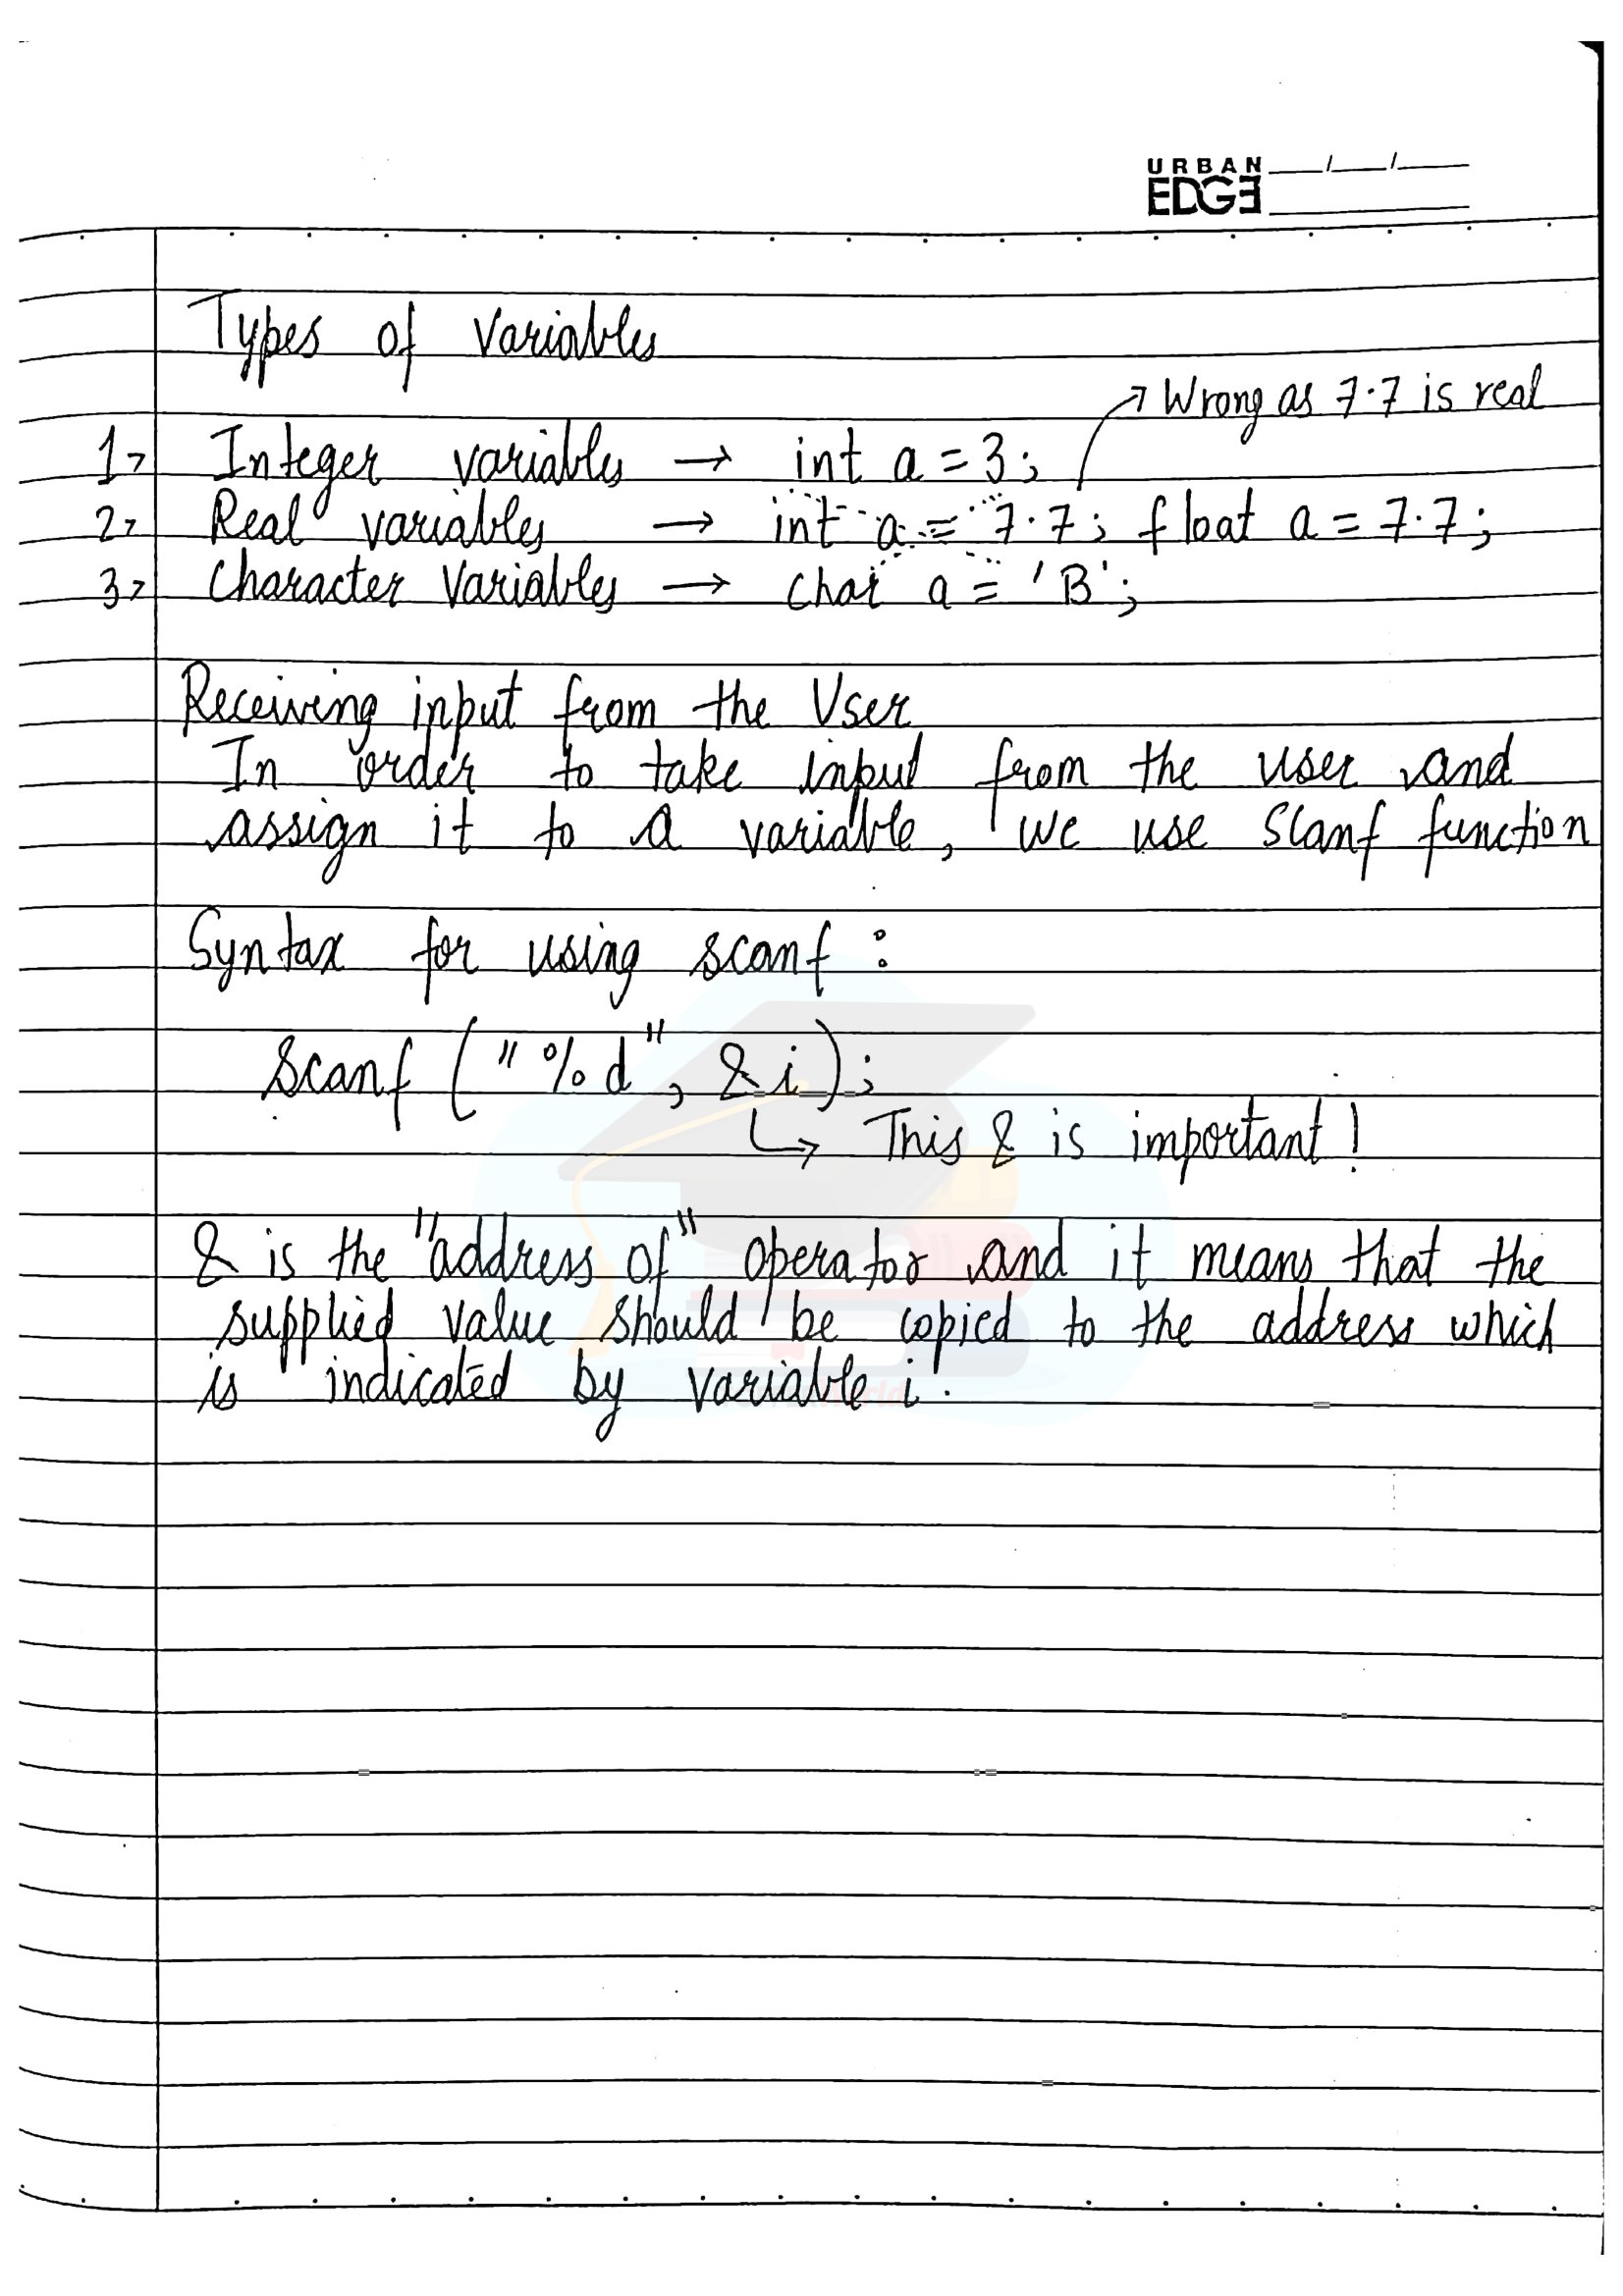 URBAN
EDGE
Types of Variables
→ Wrong as 7.7 is real
1> Integer variables → int a = 3;
2> Real variables → int a = 7.7; float a = 7.7;
3> Character Variables → char a = 'B';
Receiving input from the User
In order to take input from the user and
assign it to a variable, we use scanf function
Syntax for using scanf :
Scanf ("%d", &i);
↳ This & is important!
& is the "address of" operator and it means that the
supplied value should be copied to the address which
is indicated by variable i.